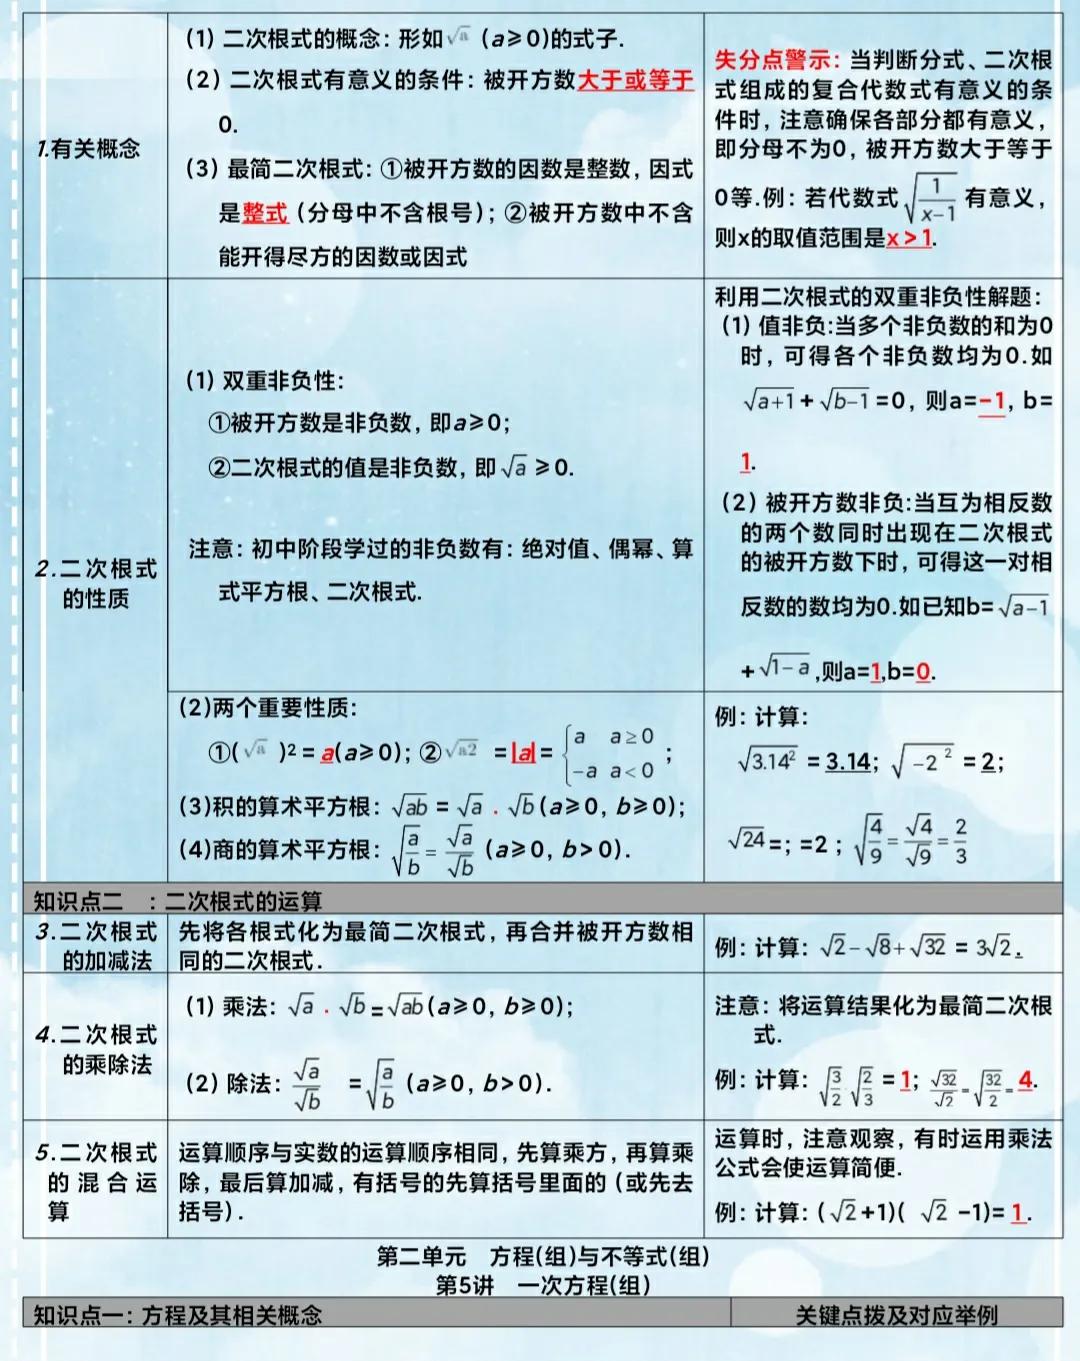 1.有关概念
(1) 二次根式的概念: 形如√a (a≥0)的式子.
(2) 二次根式有意义的条件: 被开方数大于或等于
0.
(3) 最简二次根式: ①被开方数的因数是整数, 因式
是整式 (分母中不含根号); ②被开方数中不含
能开得尽方的因数或因式
失分点警示: 当判断分式、二次根
式组成的复合代数式有意义的条
件时, 注意确保各部分都有意义,
即分母不为0, 被开方数大于等于
0等.例: 若代数式 √(1/(x-1)) 有意义,
则x的取值范围是x>1.
2.二次根式
的性质
(1) 双重非负性:
①被开方数是非负数, 即a≥0;
②二次根式的值是非负数, 即√a ≥0.
注意: 初中阶段学过的非负数有: 绝对值、偶幂、算
式平方根、二次根式.
利用二次根式的双重非负性解题:
(1) 值非负:当多个非负数的和为0
时, 可得各个非负数均为0.如
√(a+1) + √(b-1) =0, 则a=-1, b=
1.
(2) 被开方数非负:当互为相反数
的两个数同时出现在二次根式
的被开方数下时, 可得这一对相
反数的数均为0.如已知b=√(a-1)
+√(1-a) ,则a=1,b=0.
(2)两个重要性质:
①(√a )2=a(a≥0); ②√a2 =|a|= { a a≥0 ;
-a a<0
(3)积的算术平方根: √ab = √a · √b (a≥0, b≥0);
(4)商的算术平方根: √(a/b) = √a/√b (a≥0, b>0).
例: 计算:
√3.14² =3.14; √-2 ² =2;
√24 =; =2 ; √(4/9) = √4/√9 = 2/3
知识点二 : 二次根式的运算
3.二次根式
的加减法
先将各根式化为最简二次根式, 再合并被开方数相
同的二次根式.
例: 计算: √2-√8+√32 = 3√2.
4.二次根式
的乘除法
(1) 乘法: √a · √b=√ab (a≥0, b≥0);
(2) 除法: √a/√b =√(a/b) (a≥0, b>0).
注意: 将运算结果化为最简二次根
式.
例: 计算: √(3/2)·√(2/3) =1; √32/√2=√(32/2)=4.
5.二次根式
的混合运
算
运算顺序与实数的运算顺序相同, 先算乘方, 再算乘
除, 最后算加减, 有括号的先算括号里面的 (或先去
括号).
运算时, 注意观察, 有时运用乘法
公式会使运算简便.
例: 计算: (√2+1)( √2 -1)= 1.
第二单元 方程(组)与不等式(组)
第5讲 一次方程(组)
知识点一: 方程及其相关概念
关键点拨及对应举例